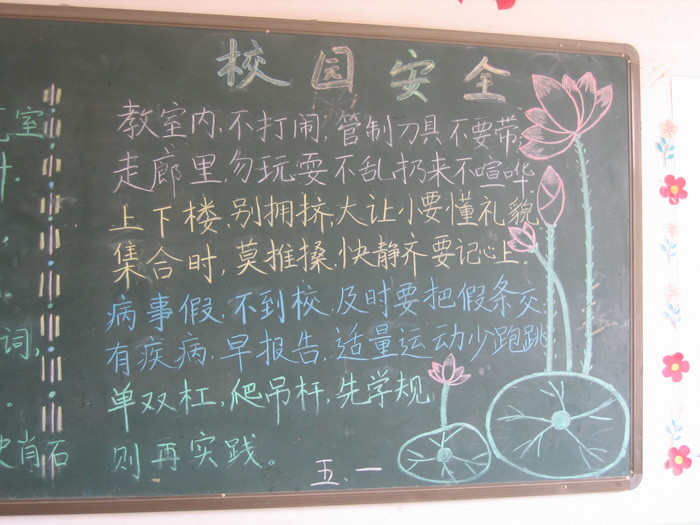 校园安全
教室内,不打闹,管制刀具不要带,
走廊里,勿玩耍不乱扔来不喧哗
上下楼,别拥挤,大让小要懂礼貌
集合时,莫推搡.快静齐要记心上.
病事假.不到校.及时要把假条交
有疾病.早报告.适量运动少跑跳
单双杠,爬吊杆.先学规
则再实践。
五.一
室
词,
肖石